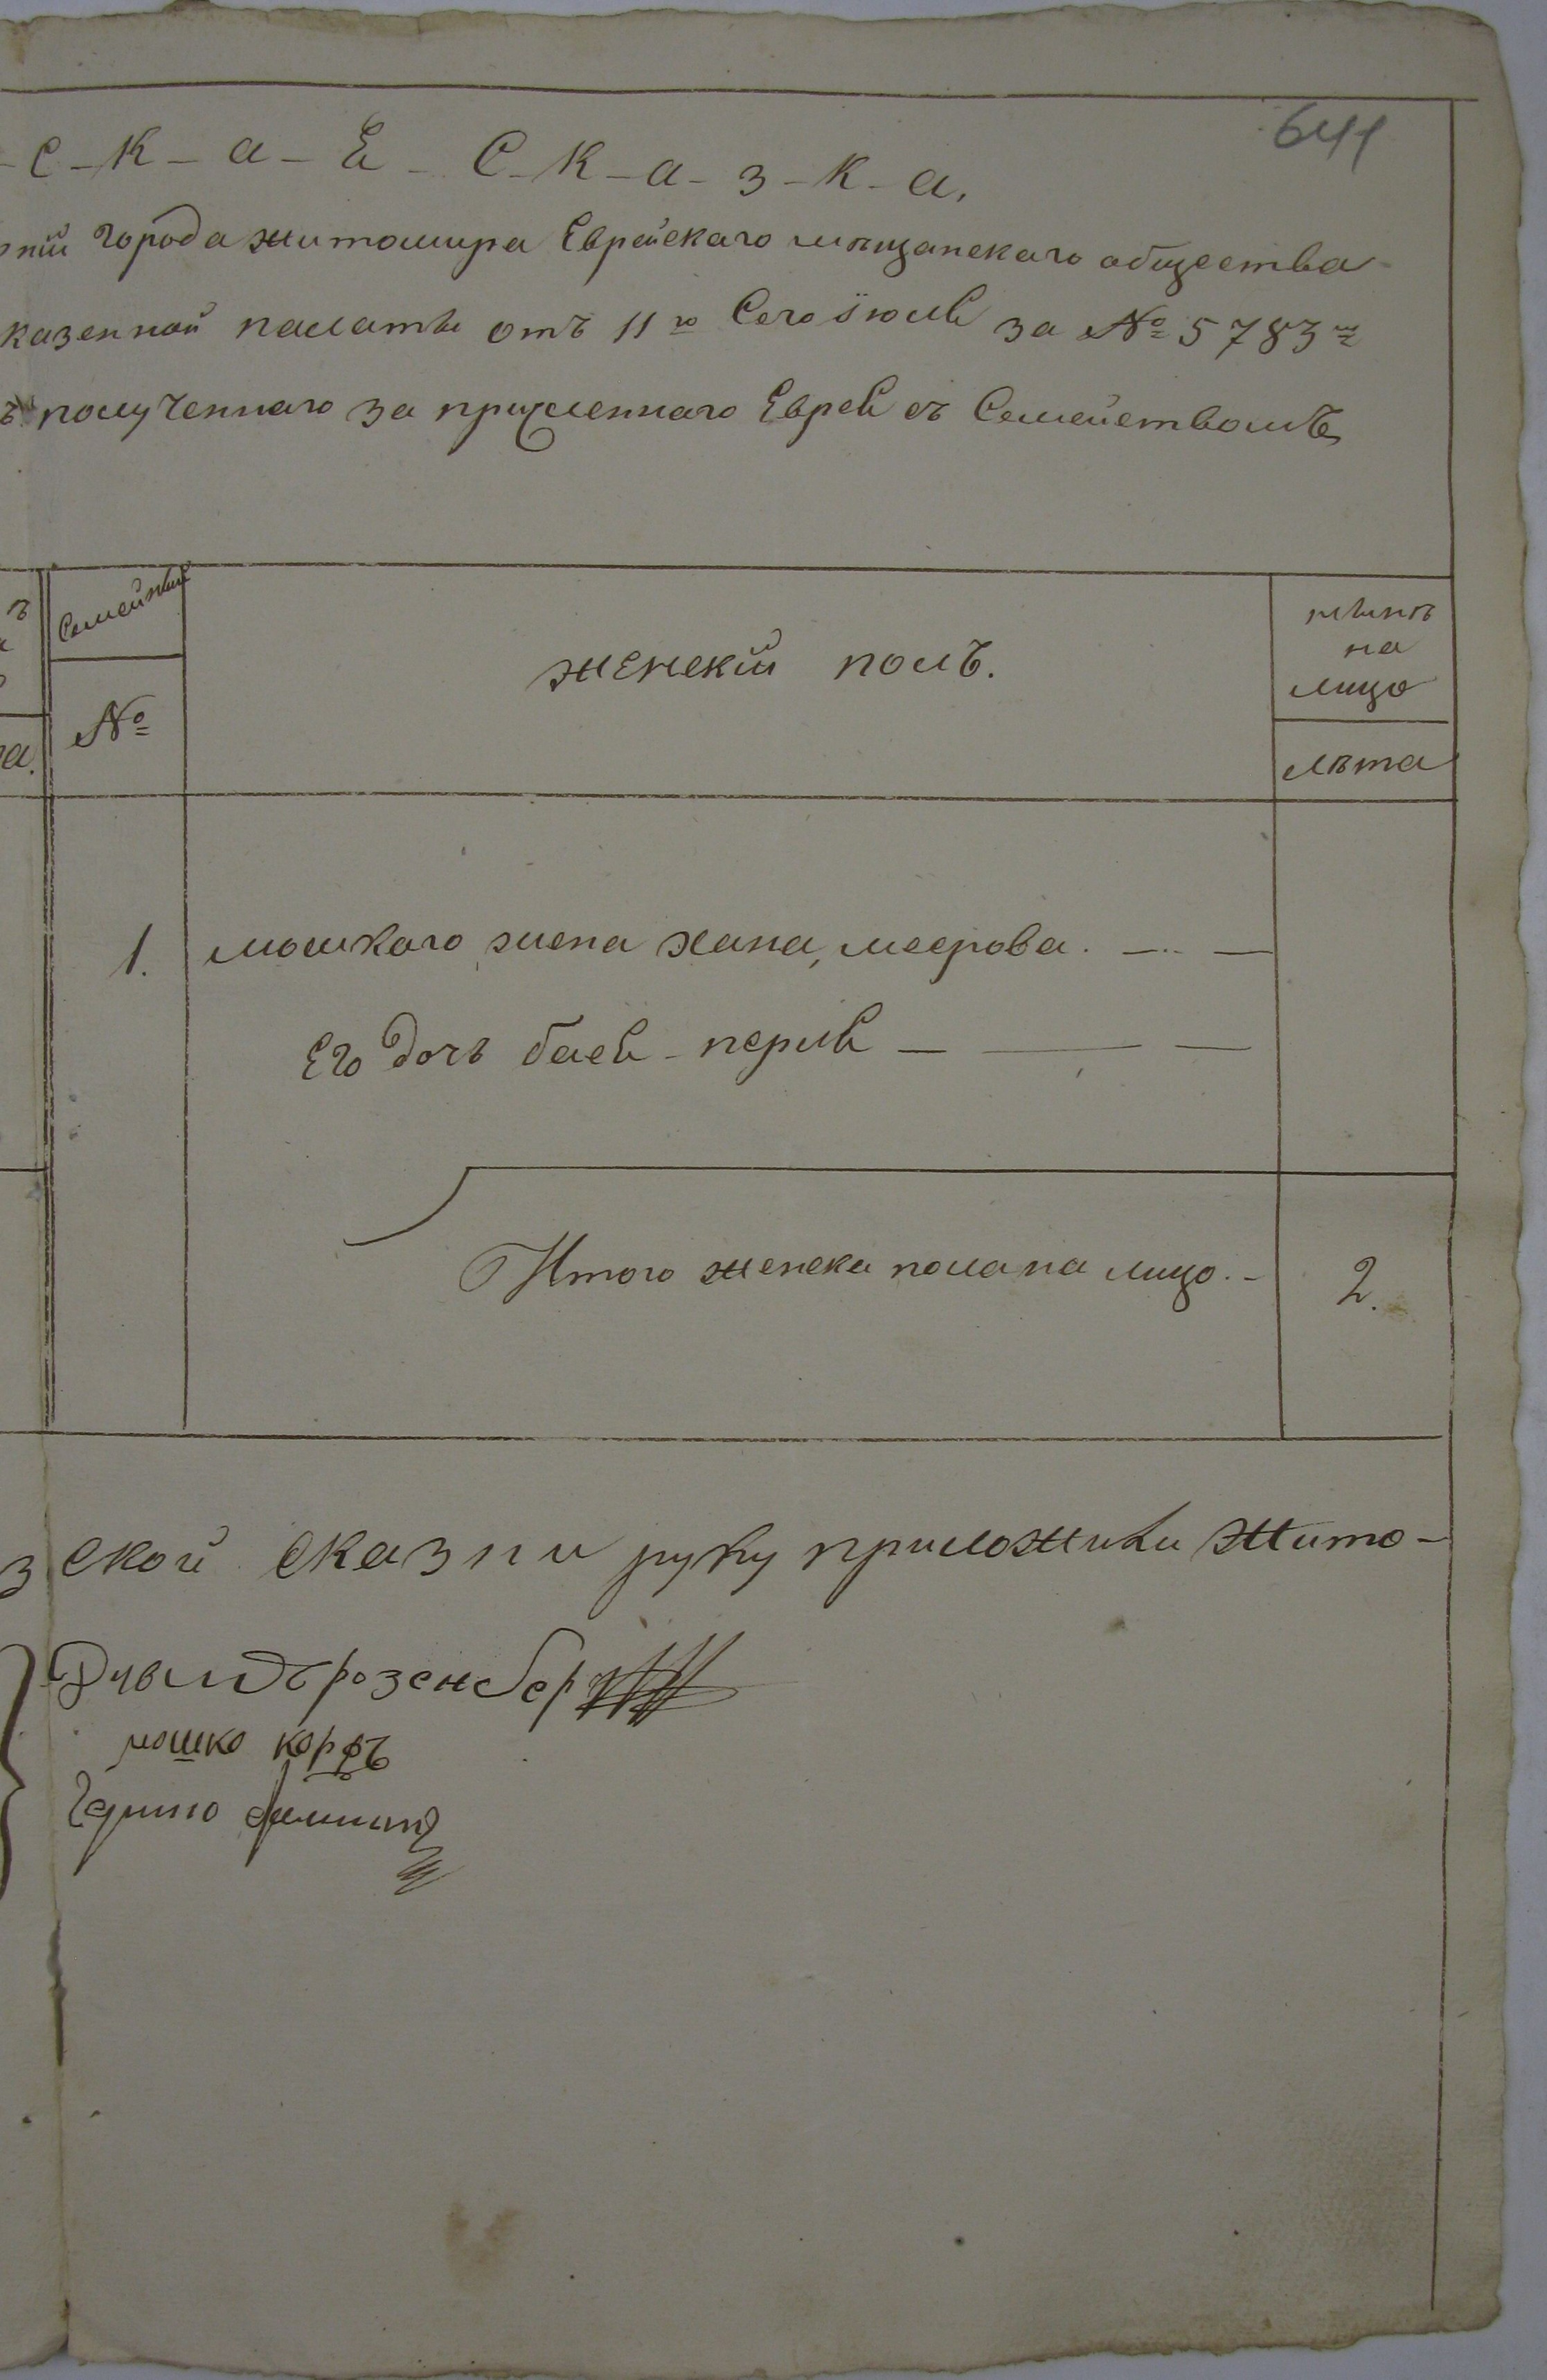 641
-с-к-а-я-С-к-а-з-к-а.
города житомира Еврейскаго мѣщанскаго общества
казенной палаты отъ 11го Сего Їюля за № 5783м
полученнаго за причисленнаго Еврея съ Семействомъ
Семейный
№
женскій полъ.
нынѣ
на
лицо
лѣта
1. мошкаго жена хана, меерова.
Его дочь бася-перля
Итого женска пола на лицо. - 2.
ской сказки руку приложили Жито-
розенберг
мошко корфъ